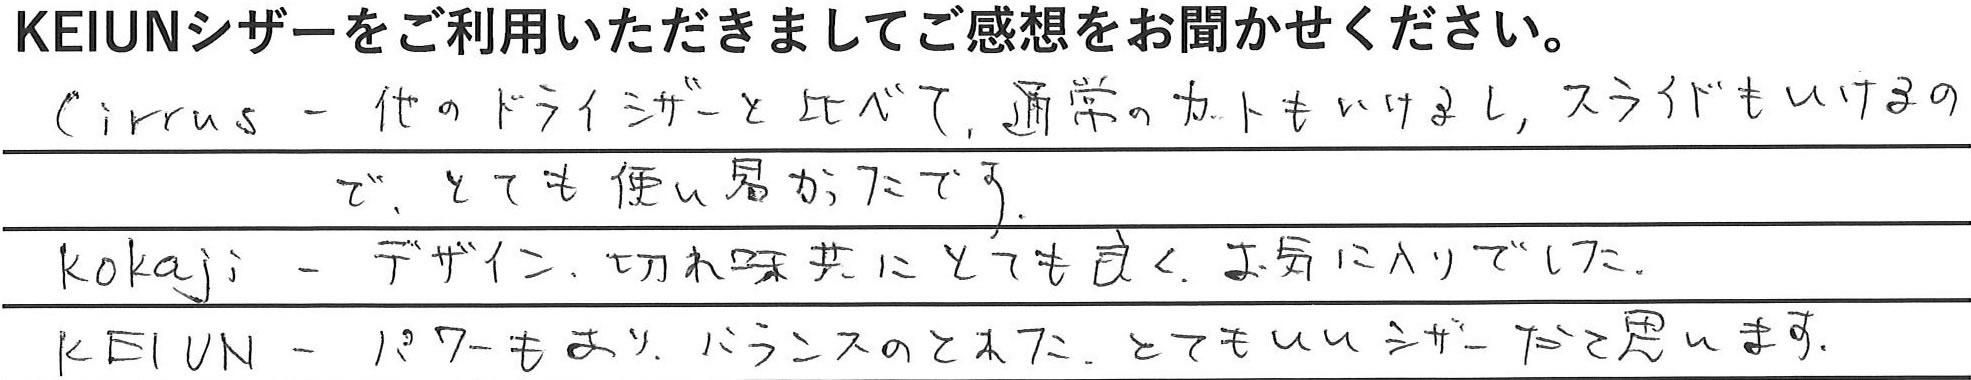 KEIUNシザーをご利用いただきましてご感想をお聞かせください。
Cirrus - 他のドライシザーと比べて、通常のカットもいけるし, スライドもいけるの
で、とても使い易かったです.
kokaji - デザイン、切れ味共にとても良く、お気に入りでした.
KEIUN - パワーもあり、バランスのとれた、とてもいいシザーだと思います.